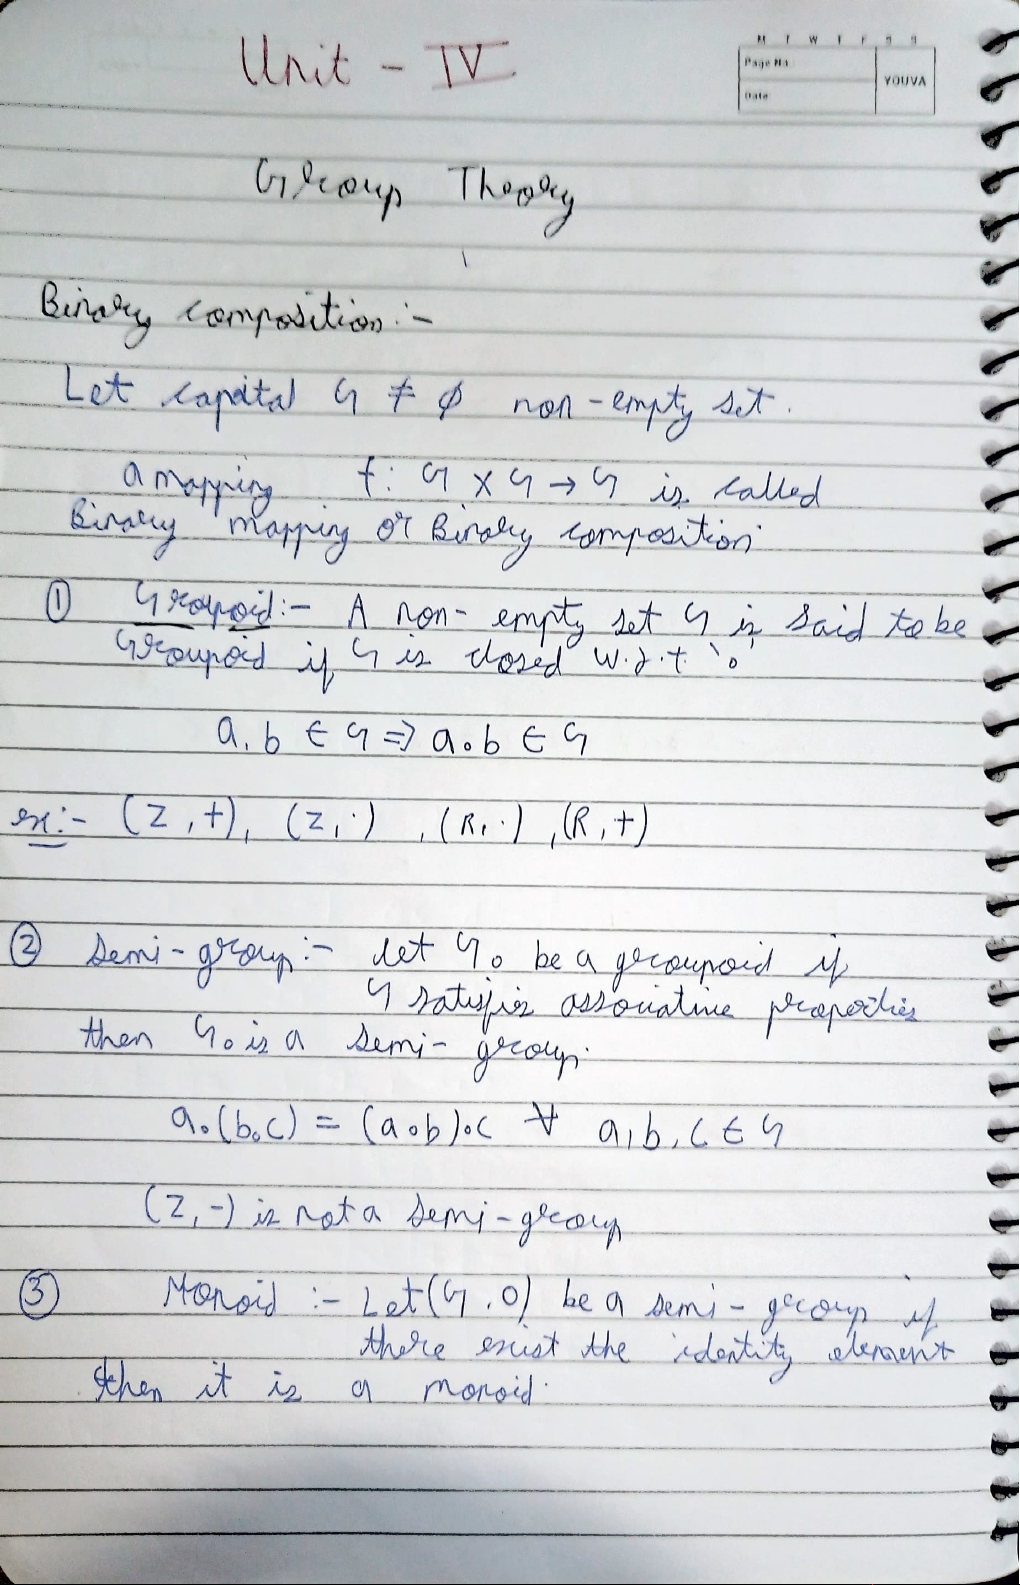 Unit - IV
M T W T F S S
Page No
Date
YOUVA
Group Theory
Binary composition :-
Let capital G ≠ ϕ non-empty set.
a mapping f: G × G → G is called
Binary mapping or Binary composition
① Groupoid:- A non-empty set G is said to be
Groupoid if G is closed w.r.t 'o'
a, b ∈ G ⇒ a∘b ∈ G
ex:- (Z, +), (Z, ·), (R, ·), (R, +)
② Semi-group:- let G∘ be a groupoid if
G satisfies associative properties
then G∘ is a semi-group.
a∘(b∘c) = (a∘b)∘c ∀ a, b, c ∈ G
(Z, -) is not a semi-group
③ Monoid :- Let (G, O) be a semi-group if
there exist the identity element
then it is a monoid.